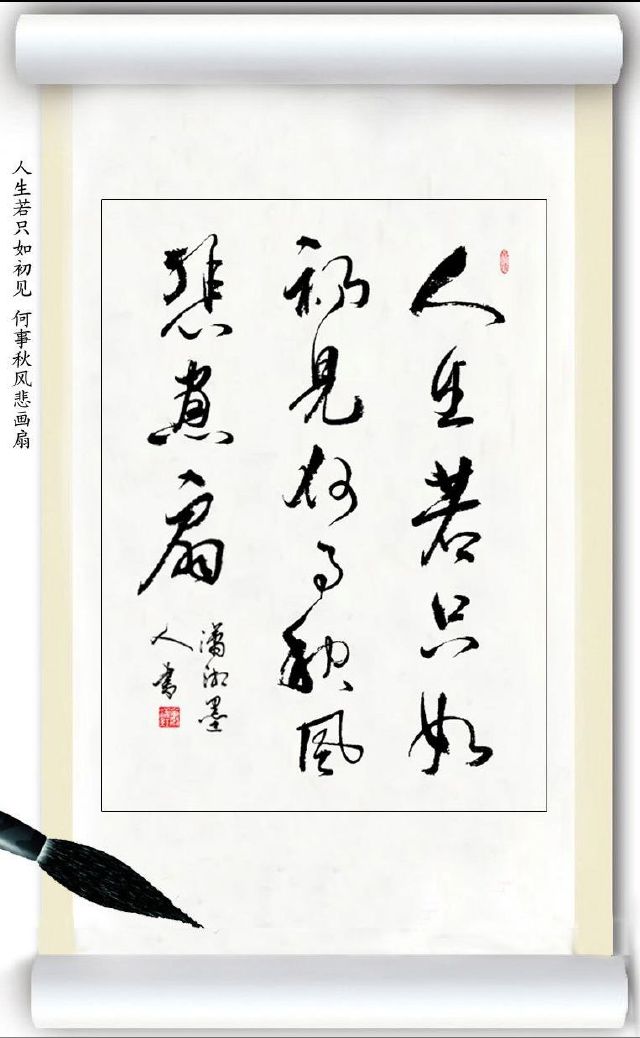 人生若只如
初見何事秋風
悲畫扇
瀟湘墨
人書
人生若只如初见 何事秋风悲画扇